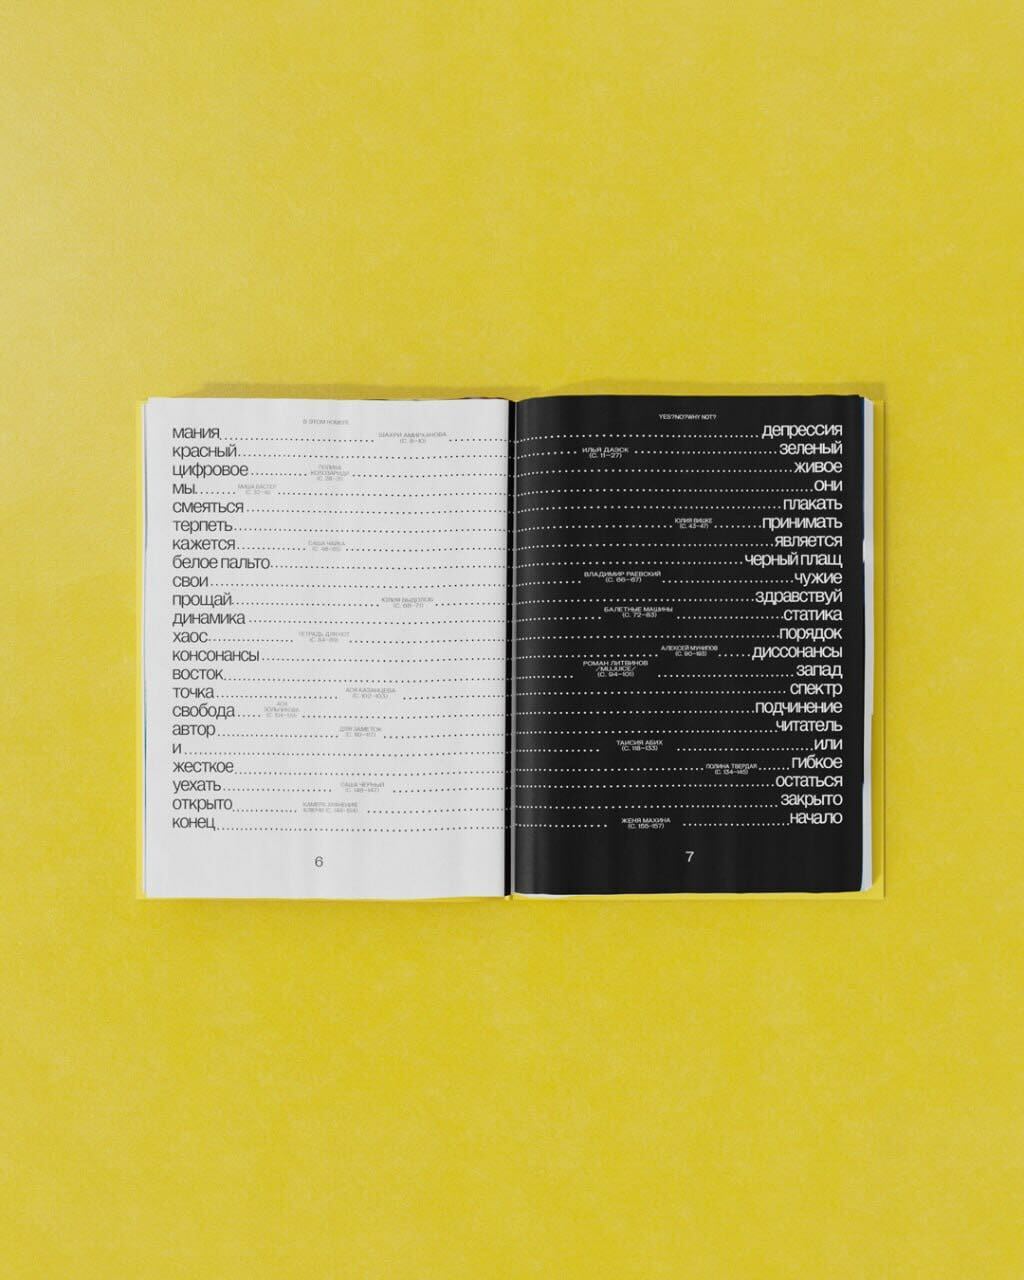 В ЭТОМ НОМЕРЕ
мания
ШАХРИ АМИРХАНОВА
(С. 8–10)
красный
цифровое
ПОЛИНА
мы
МИША БАСТЕР
смеяться
терпеть
кажется
САША ЧАЙКА
белое пальто
свои
прощай
ЮЛИЯ ВЫДОЛОБ
(С. 68–71)
динамика
хаос
ТЕТРАДЬ ДЛЯ НОТ
(С. 84–89)
консонансы
восток
точка
АСЯ КАЗАНЦЕВА
(С. 102–103)
свобода
АСЯ
автор
ДЛЯ ЗАМЕТОК
и
жесткое
уехать
САША ЧЕРНЫЙ
(С. 146–147)
открыто
КАМЕРА ХРАНЕНИЕ
конец
6
YES?NO?WHY NOT?
депрессия
ИЛЬЯ ДАЭОК
(С. 11–27)
зеленый
живое
они
плакать
ЮЛИЯ ВИЦКЕ
(С. 43–47)
принимать
является
черный плащ
ВЛАДИМИР РАЕВСКИЙ
(С. 66–67)
чужие
здравствуй
БАЛЕТНЫЕ МАШИНЫ
(С. 72–83)
статика
порядок
АЛЕКСЕЙ МУНИПОВ
диссонансы
РОМАН ЛИТВИНОВ
/MUJUICE/
(С. 94–101)
запад
спектр
подчинение
читатель
ТАИСИЯ АБИХ
(С. 118–133)
или
ПОЛИНА ТВЕРДАЯ
(С. 134–145)
гибкое
остаться
закрыто
ЖЕНЯ МАХИНА
(С. 155–157)
начало
7